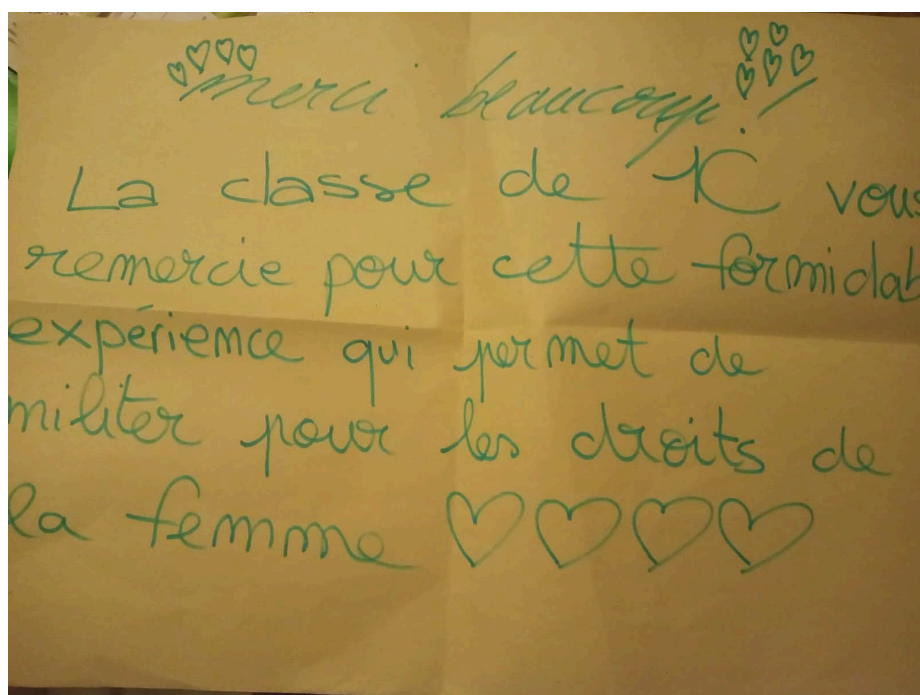 merci beaucoup!
La classe de 1C vous
remercie pour cette formidab
expérience qui permet de
militer pour les droits de
la femme